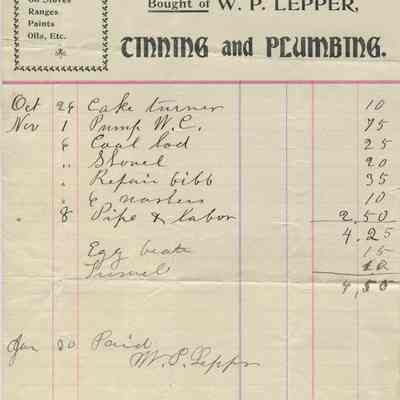 Oil Stoves
Ranges
Paints
Oils, Etc.
Bought of W. P. LEPPER,
TINNING and PLUMBING.
Oct 24 Cake turner 10
Nov 1 Pump W.C. 75
6 Coal hod 25
" Shovel 20
" Repair bibb 35
" 6 washers 10
" 8 Pipe & labor 2.50
4.25
Egg beater 15
Funnel 10
4,50
Jan 20 Paid
W. P. Lepper